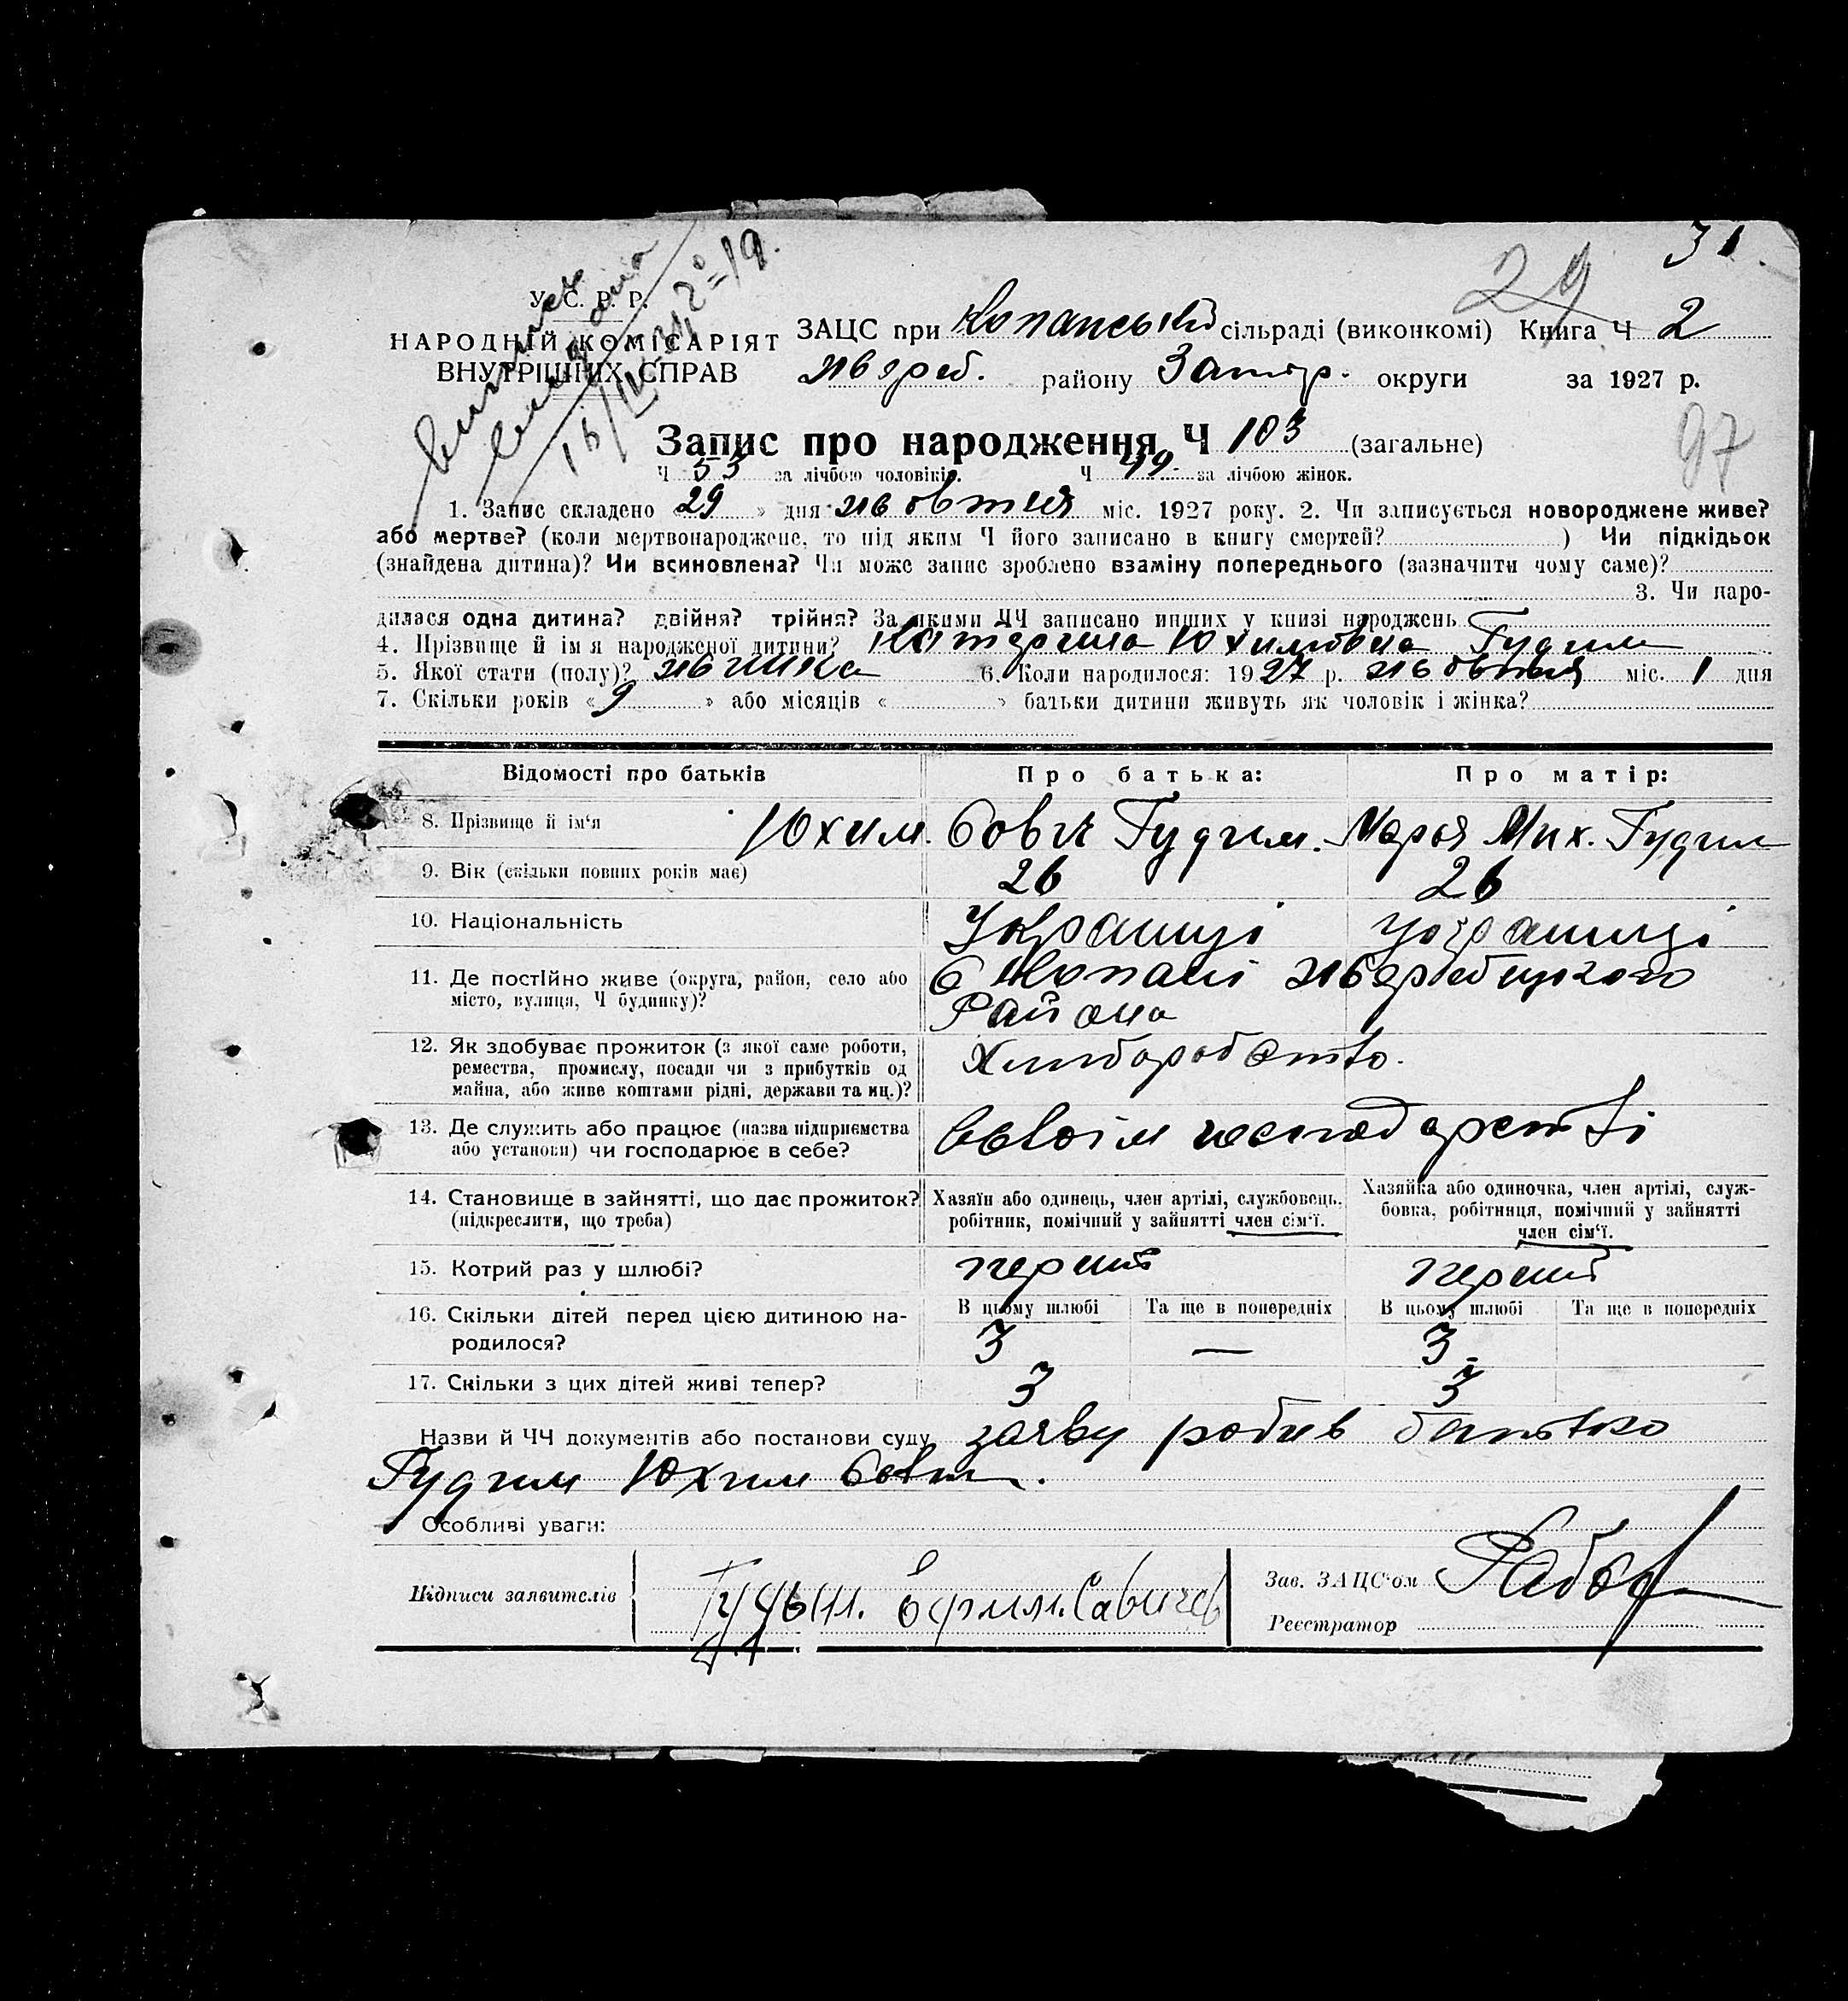 31
29
У. С. Р. Р.
НАРОДНІЙ КОМІСАРІЯТ
ВНУТРІШНІХ СПРАВ
ЗАЦС при Копанський сільраді (виконкомі) Книга Ч 2
жереб. району Запор. округи за 1927 р.
97
Запис про народження Ч 103 (загальне)
Ч 53 за лічбою чоловіків. Ч 49 за лічбою жінок.
1. Запис складено « 29 » дня жовтня міс. 1927 року. 2. Чи записується новороджене живе?
або мертве? (коли мертвонароджене, то під яким Ч його записано в книгу смертей? ) Чи підкідьок
(знайдена дитина)? Чи всиновлена? Чи може запис зроблено взаміну попереднього (зазначити чому саме)?
3. Чи наро-
дилася одна дитина? двійня? трійня? За якими ЧЧ записано инших у книзі народжень
4. Прізвище й ім'я народженої дитини? Катерина Юхимовна Гудим
5. Якої стати (полу)? жінка 6. Коли народилося: 1927 р. жовтня міс. 1 дня
7. Скільки років « 9 » або місяців « » батьки дитини живуть як чоловік і жінка?
Відомості про батьків Про батька: Про матір:
8. Прізвище й ім'я Юхим Савич Гудим. Марья Мих. Гудим
9. Вік (скільки повних років має) 26 26
10. Національність Українці українці
11. Де постійно живе (округа, район, село або С Копані жеребецкого
місто, вулиця, Ч будинку)? Района
12. Як здобуває прожиток (з якої саме роботи, Хлиборобство.
ремества, промислу, посади чи з прибутків од
майна, або живе коштами рідні, держави та ин.)?
13. Де служить або працює (назва підприємства всвоім господарстві
або установи) чи господарює в себе?
14. Становище в зайнятті, що дає прожиток? Хазяїн або одинець, член артілі, службовець, Хазяйка або одиночка, член артілі, служ-
(підкреслити, що треба) робітник, помічний у зайнятті член сім'ї. бовка, робітниця, помічний у зайнятті
член сім'ї.
15. Котрий раз у шлюбі? перший перший
16. Скільки дітей перед цією дитиною на- В цьому шлюбі Та ще в попередніх В цьому шлюбі Та ще в попередніх
родилося? 3 — 3
17. Скільки з цих дітей живі тепер? 3 3
Назви й ЧЧ документів або постанови суду заяву робив батько
Гудим Юхим Савич.
Особливі уваги:
Підписи заявителів Гудым. Ефим. Савичев Зав. ЗАЦС'ом
Реєстратор